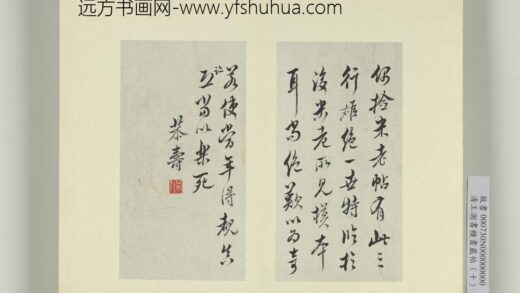 远方书画网-www.yfshuhua.com
偶捡米老帖有此三
行雄绝一世特临于
后米老所见摸本
耳当绝叹以为奇
若使当年得观真
当以乐死
恭寿
故書000730N000000000
清王澍書積書巖帖(十)